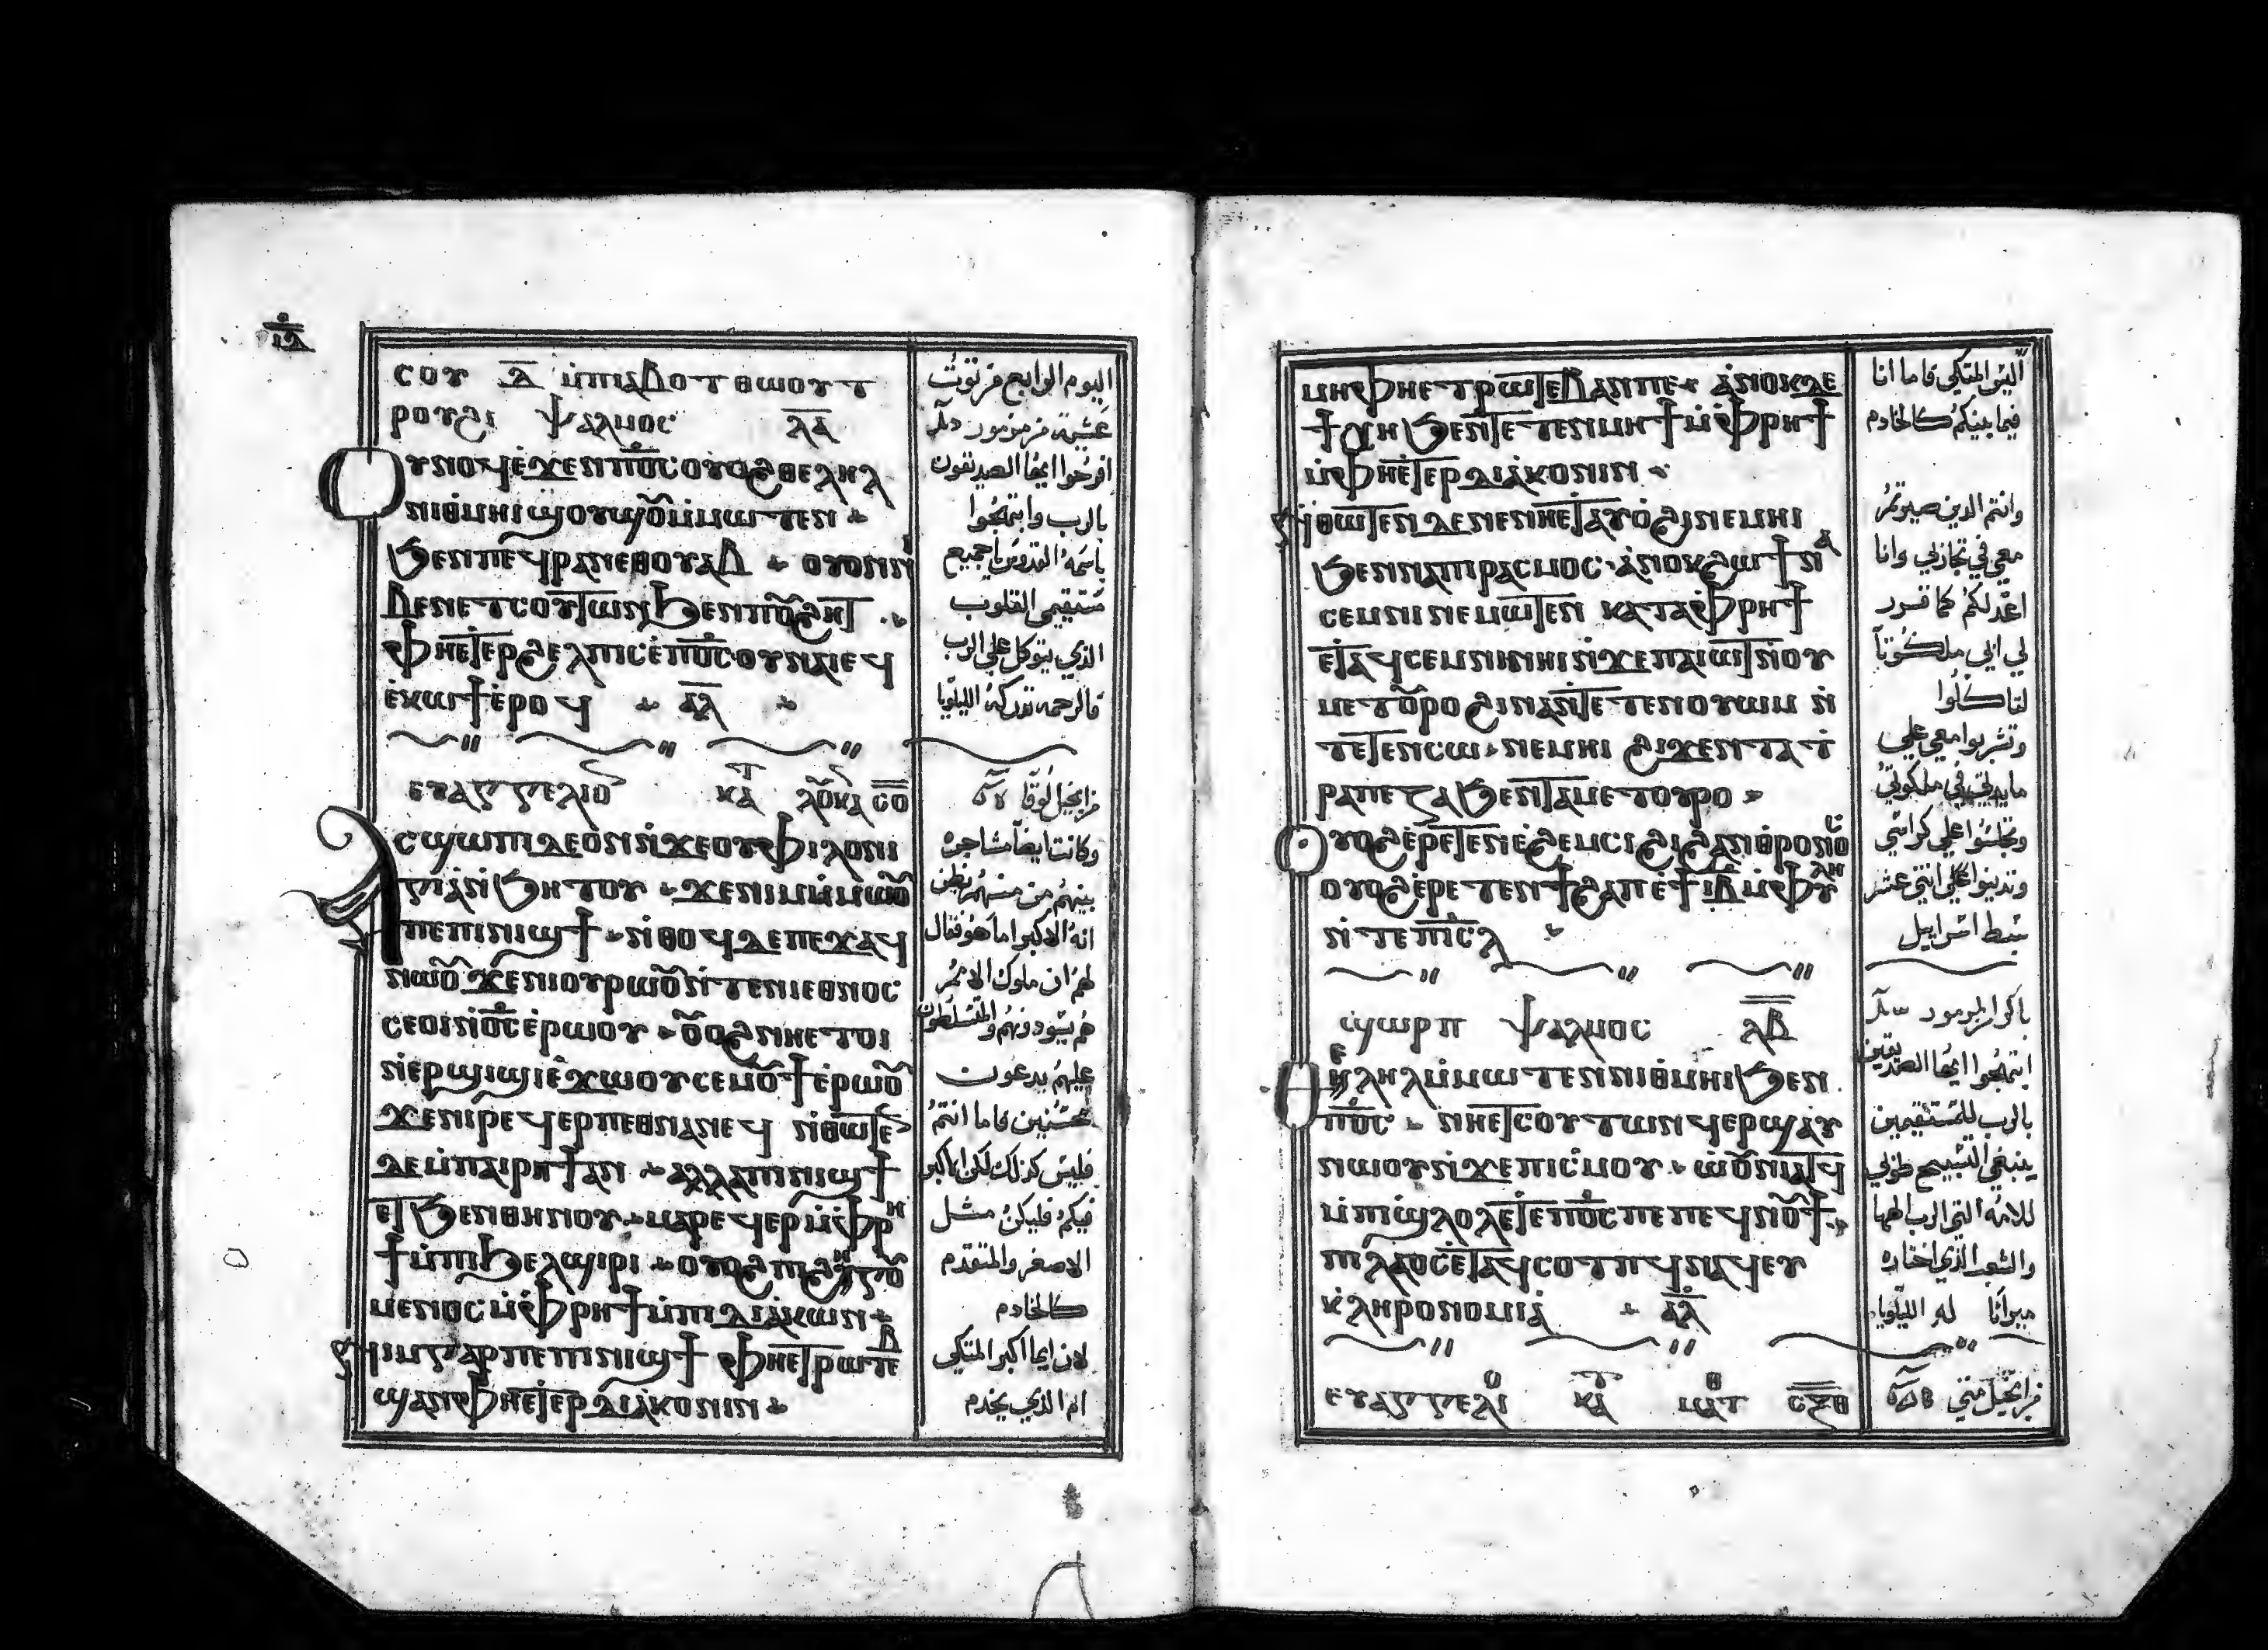 ⲇ̅ⲓ̅
ⲥⲟⲩ ⲇ̅ ⲙ̀ⲡⲓⲁⲃⲟⲧ ⲑⲱⲟⲩⲧ
ⲣⲟⲩϩⲓ ⲯⲁⲗⲙⲟⲥ ⲗ̅ⲁ̅
ⲟⲩⲛⲟϥ ⲉ̀ϫⲉⲛ ⲡ̅ⲟ̅ⲥ̅ ⲟⲩⲟϩ ⲑⲉⲗⲏⲗ
ⲛⲓⲑ̀ⲙⲏⲓ ϣⲟⲩϣⲟⲩ ⲙ̀ⲙⲱⲧⲉⲛ
ϧⲉⲛ ⲡⲉϥⲣⲁⲛ ⲉⲑⲟⲩⲁⲃ ⲟⲩⲟⲛ ⲛⲓ
ⲃⲉⲛ ⲉⲧⲥⲟⲩⲧⲱⲛ ϧⲉⲛ ⲡⲟⲩϩⲏⲧ
ⲫⲏⲉⲧⲉⲣϩⲉⲗⲡⲓⲥ ⲉ̀ⲡ̅ⲟ̅ⲥ̅ ⲟⲩⲛⲁⲓ ⲉϥ
ⲉ̀ⲕⲱϯ ⲉ̀ⲣⲟϥ ⲁ̅ⲗ̅
ⲉⲩⲁⲅⲅⲉⲗⲓⲟ ⲕⲁⲧ ⲗⲟⲩⲕⲁ ⲥ̅ⲟ̅
ⲁⲥϣⲱⲡⲓ ⲇⲉ ⲟⲛ ⲛ̀ϫⲉ ⲟⲩⲫⲓⲗⲟⲛⲓ
ⲅⲓⲁ̀ ⲛ̀ϧⲏⲧⲟⲩ ϫⲉ ⲛⲓⲙ ⲙ̀ⲙⲱⲟⲩ
ⲡⲉ ⲡⲓⲛⲓϣϯ ⲛ̀ⲑⲟϥ ⲇⲉ ⲡⲉϫⲁϥ
ⲛⲱⲟⲩ ϫⲉ ⲛⲓⲟⲩⲣⲱⲟⲩ ⲛ̀ⲧⲉ ⲛⲓⲉⲑⲛⲟⲥ
ⲥⲉⲟⲓ ⲛ̀ⲟ̅ⲥ̅ ⲉ̀ⲣⲱⲟⲩ ⲟⲩⲟϩ ⲛⲏⲉⲧⲟⲓ
ⲛ̀ⲉⲣϣⲓϣⲓ ⲉ̀ϫⲱⲟⲩ ⲥⲉⲙⲟⲩϯ ⲉ̀ⲣⲱⲟⲩ
ϫⲉ ⲛⲓⲣⲉϥⲉⲣⲡⲉⲑⲛⲁⲛⲉϥ ⲛ̀ⲑⲱⲧⲉⲛ
ⲇⲉ ⲙ̀ⲡⲁⲓⲣⲏϯ ⲁⲛ ⲁⲗⲗⲁ ⲡⲓⲛⲓϣϯ
ⲉⲧϧⲉⲛ ⲑⲏⲛⲟⲩ ⲙⲁⲣⲉϥⲉⲣ ⲙ̀ⲫⲣⲏ
ϯ ⲙ̀ⲡⲓϧⲉⲗϣⲓⲣⲓ ⲟⲩⲟϩ ⲡⲓϩⲏⲅⲟⲩ
ⲙⲉⲛⲟⲥ ⲙ̀ⲫⲣⲏϯ ⲙ̀ⲡⲓⲇⲓⲁ̀ⲕⲱⲛ
ⲛⲓⲙ ⲅⲁⲣ ⲡⲉ ⲡⲓⲛⲓϣϯ ⲫⲏⲉⲧⲣⲱⲧⲉⲃ
ϣⲁⲛ ⲫⲏⲉⲧⲉⲣⲇⲓⲁ̀ⲕⲟⲛⲓⲛ
اليوم الرابع من توت
عشية من مزمور
افرحوا ايها الصديقون
بالرب وابتهجوا
باسمه القدوس يا جميع
مستقيمي القلوب
الذي يتوكل علي الرب
فالرحمه تدركه الليلويا
من انجيل لوقا
وكانت ايضا مشاجره
بينهم من منهم يظن
انه الاكبر اما هو فقال
لهم ان ملوك الامم
هم يسودونهم والمتسلطون
عليهم يدعون
محسنين فاما انتم
فليس كذلك لكن الاكبر
فيكم فليكن مثل
الاصغر والمتقدم
كالخادم
لان ايما اكبر المتكي
ام الذي يخدم
ⲙⲏ ⲫⲏⲉⲧⲣⲱⲧⲉⲃ ⲁⲛ ⲡⲉ ⲁ̀ⲛⲟⲕ ⲇⲉ
ϯⲭⲏ ϧⲉⲛ ⲧⲉⲧⲉⲛⲙⲏϯ ⲙ̀ⲫⲣⲏϯ
ⲙ̀ⲫⲏⲉⲧⲉⲣⲇⲓⲁ̀ⲕⲟⲛⲓⲛ
ⲛ̀ⲑⲱⲧⲉⲛ ⲇⲉ ⲛⲉⲛ ⲛⲏⲉⲧⲁⲩⲟ̀ϩⲓ ⲛⲉⲙⲏⲓ
ϧⲉⲛ ⲛⲁⲡⲓⲣⲁⲥⲙⲟⲥ ⲁ̀ⲛⲟⲕ ϩⲱ ϯⲛⲁ
ⲥⲉⲙⲛⲓ ⲛⲉⲙⲱⲧⲉⲛ ⲕⲁⲧⲁ ⲫⲣⲏϯ
ⲉⲧⲁϥⲥⲉⲙⲛⲏ ⲛⲏⲓ ⲛ̀ϫⲉ ⲡⲁⲓⲱⲧ ⲛ̀ⲟⲩ
ⲙⲉⲧⲟⲩⲣⲟ ϩⲓⲛⲁ ⲛ̀ⲧⲉⲧⲉⲛⲟⲩⲱⲙ ⲛ̀
ⲧⲉⲧⲉⲛⲥⲱ ⲛⲉⲙⲏⲓ ϩⲓϫⲉⲛ ⲧⲁⲧ
ⲣⲁⲡⲉⲍⲁ ϧⲉⲛ ⲧⲁⲙⲉⲧⲟⲩⲣⲟ
ⲟⲩⲟϩ ⲉ̀ⲣⲉⲧⲉⲛⲉ̀ϩⲉⲙⲥⲓ ϩⲓ ϩⲁⲛⲑ̀ⲣⲟⲛⲟⲥ
ⲟⲩⲟϩ ⲉ̀ⲣⲉⲧⲉⲛϯϩⲁⲡ ⲉ̀ϯⲓ̅ⲃ̅ ⲙ̀ⲫⲩⲗⲏ
ⲛ̀ⲧⲉ ⲡⲓⲥ̅ⲗ̅
ϣⲱⲣⲡ ⲯⲁⲗⲙⲟⲥ ⲗ̅ⲃ̅
ⲑⲉⲗⲏⲗ ⲙ̀ⲙⲱⲧⲉⲛ ⲛⲓⲑ̀ⲙⲏⲓ ϧⲉⲛ
ⲡ̅ⲟ̅ⲥ̅ ⲛⲏⲉⲧⲥⲟⲩⲧⲱⲛ ϥⲉⲣϣⲁⲩ
ⲛⲱⲟⲩ ⲛ̀ϫⲉ ⲡⲓⲥ̀ⲙⲟⲩ ⲱ̀ⲟⲩⲛⲓⲁⲧϥ
ⲙ̀ⲡⲓϣⲗⲟⲗ ⲉⲧⲉ ⲡ̅ⲟ̅ⲥ̅ ⲡⲉ ⲡⲉϥⲛⲟⲩϯ
ⲡⲓⲗⲁⲟⲥ ⲉ̀ⲧⲁϥⲥⲟⲧⲡϥ ⲛⲁϥ ⲉⲩ
ⲕ̀ⲗⲏⲣⲟⲛⲟⲙⲓⲁ̀ ⲁ̅ⲗ̅
ⲉⲩⲁⲅⲅⲉⲗⲓⲟ ⲕⲁⲧ ⲙⲁⲧⲑ ⲥ̅ⲝ̅ⲑ̅
اليس المتكي فاما انا
فيما بينكم كالخادم
وانتم الذين صبرتم
معي في تجاربي وانا
اعد لكم كما قرر
لي ابي ملكوتا
لتاكلوا
وتشربوا معي علي
مايدتي في ملكوتي
وتجلسوا علي كراسي
وتدينوا علي اثني عشر
سبط اسراييل
باكر المزمور
ابتهجوا ايها الصديقين
بالرب للمستقيمين
ينبغي التسبيح طوبي
للامه التي الرب الهها
والشعب الذي اختاره
ميراثا له الليلويا
من انجيل متي